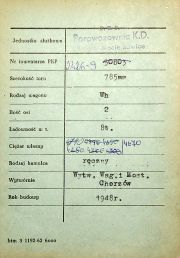 Jednostka służbowa
Parowozownia K.D.
Nr inwentarza PKP
Szerokość toru 785mm
Rodzaj wagonu Wh
Ilość osi 2
Ładowność w t. 8t.
Ciężar własny 4670
Rodzaj hamulca ręczny
Wytwórnia Wytw. Wag. i Most.
Chorzów
Rok budowy 1948r.